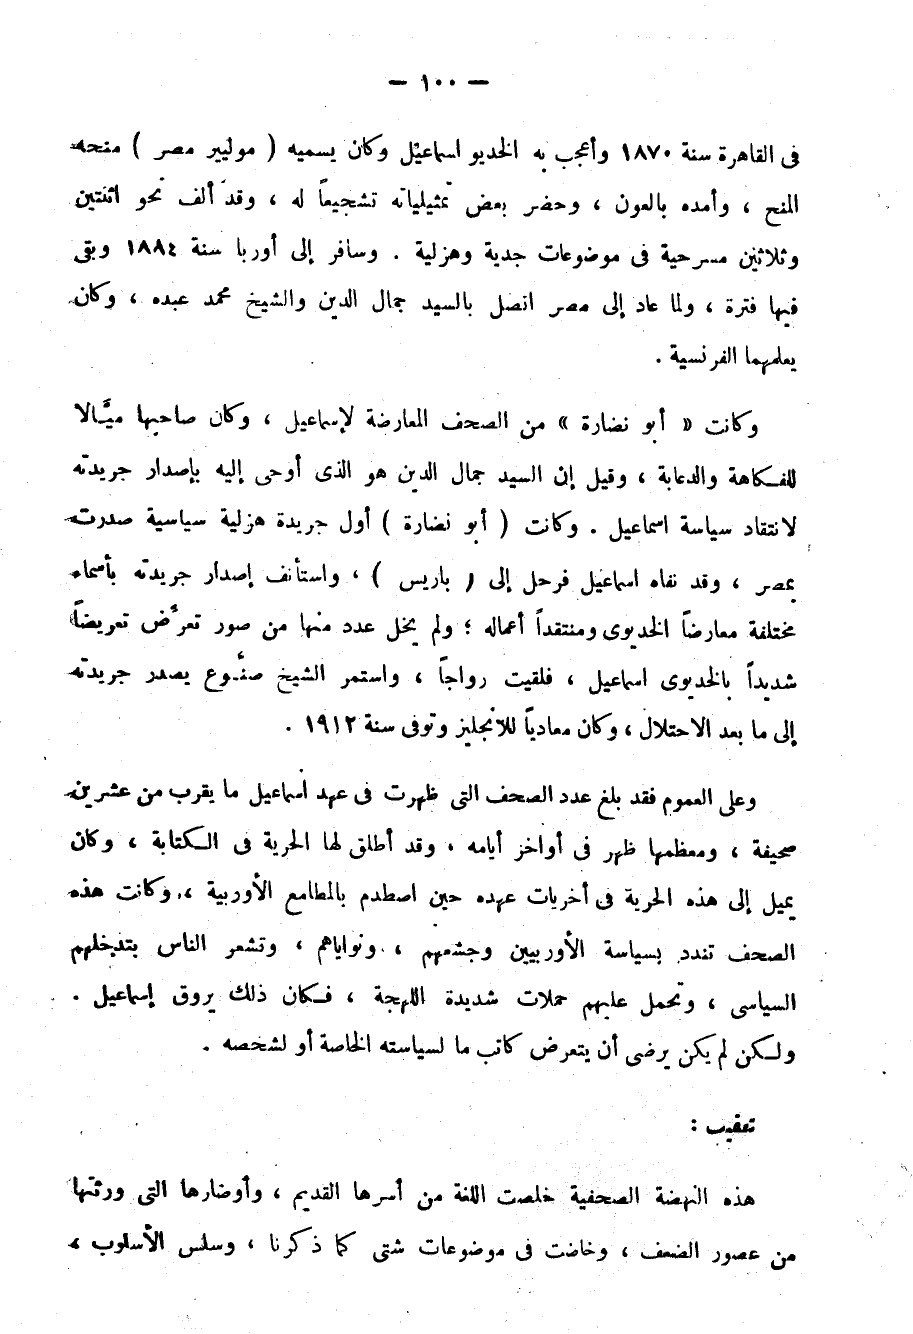 — ١٠٠ —
فى القاهرة سنة ١٨٧٠ وأعجب به الخديو اسماعيل وكان يسميه ( موليير مصر ) منحه
المنح ، وأمده بالعون ، وحضر بعض تمثيلياته تشجيعاً له ، وقد ألف نحو اثنتين
وثلاثين مسرحية فى موضوعات جدية وهزلية . وسافر إلى أوربا سنة ١٨٨٤ وبقى
فيها فترة ، ولما عاد إلى مصر اتصل بالسيد جمال الدين والشيخ محمد عبده ، وكان
يعلمهما الفرنسية .
وكانت « أبو نضارة » من الصحف المعارضة لإسماعيل ، وكان صاحبها ميَّالا
للفكاهة والدعابة ، وقيل إن السيد جمال الدين هو الذى أوحى إليه بإصدار جريدته
لانتقاد سياسة اسماعيل . وكانت ( أبو نضارة ) أول جريدة هزلية سياسية صدرت
بمصر ، وقد نفاه اسماعيل فرحل إلى ( باريس ) ، واستأنف إصدار جريدته بأسماء
مختلفة معارضاً الخديوى ومنتقداً أعماله ؛ ولم يخل عدد منها من صور تعرِّض تعريضاً
شديداً بالخديوى اسماعيل ، فلقيت رواجاً ، واستمر الشيخ صنُّوع يصدر جريدته
إلى ما بعد الاحتلال ، وكان معادياً للانجليز وتوفى سنة ١٩١٢ .
وعلى العموم فقد بلغ عدد الصحف التى ظهرت فى عهد اسماعيل ما يقرب من عشرين
صحيفة ، ومعظمها ظهر فى أواخر أيامه . وقد أطلق لها الحرية فى الكتابة ، وكان
يميل إلى هذه الحرية فى أخريات عهده حين اصطدم بالمطامع الأوربية ، وكانت هذه
الصحف تندد بسياسة الأوربيين وجشعهم ، ونواياهم ، وتشعر الناس بتدخلهم
السياسى ، وتحمل عليهم حملات شديدة اللهجة ، فكان ذلك يروق إسماعيل .
ولكن لم يكن يرضى أن يتعرض كاتب ما لسياسته الخاصة أو لشخصه .
تعقيب :
هذه النهضة الصحفية خلصت اللغة من أسرها القديم ، وأوضارها التى ورثتها
من عصور الضعف ، وخاضت فى موضوعات شتى كما ذكرنا ، وسلس الأسلوب ،